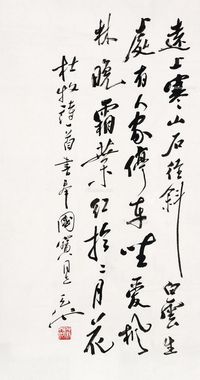 遠上寒山石徑斜白雲生
處有人家停車坐愛楓
林晚霜葉紅於二月花
杜牧詩一首書奉國